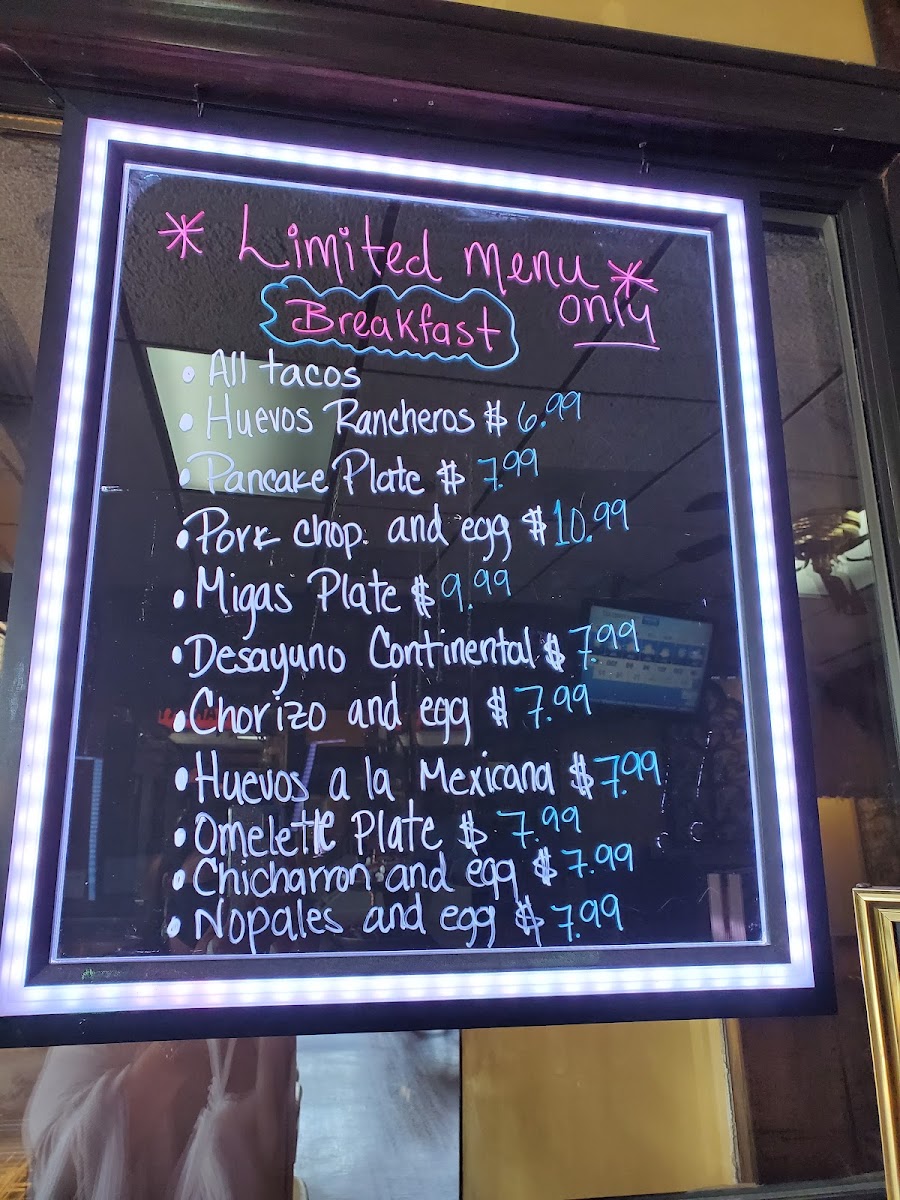 * Limited Menu *
Breakfast only
• All tacos
• Huevos Rancheros $ 6.99
• Pancake Plate $ 7.99
• Pork chop. and egg $ 10.99
• Migas Plate $ 9.99
• Desayuno Continental $ 7.99
• Chorizo and egg $ 7.99
• Huevos a la Mexicana $ 7.99
• Omelette Plate $ 7.99
• Chicharron and egg $ 7.99
• Nopales and egg $ 7.99